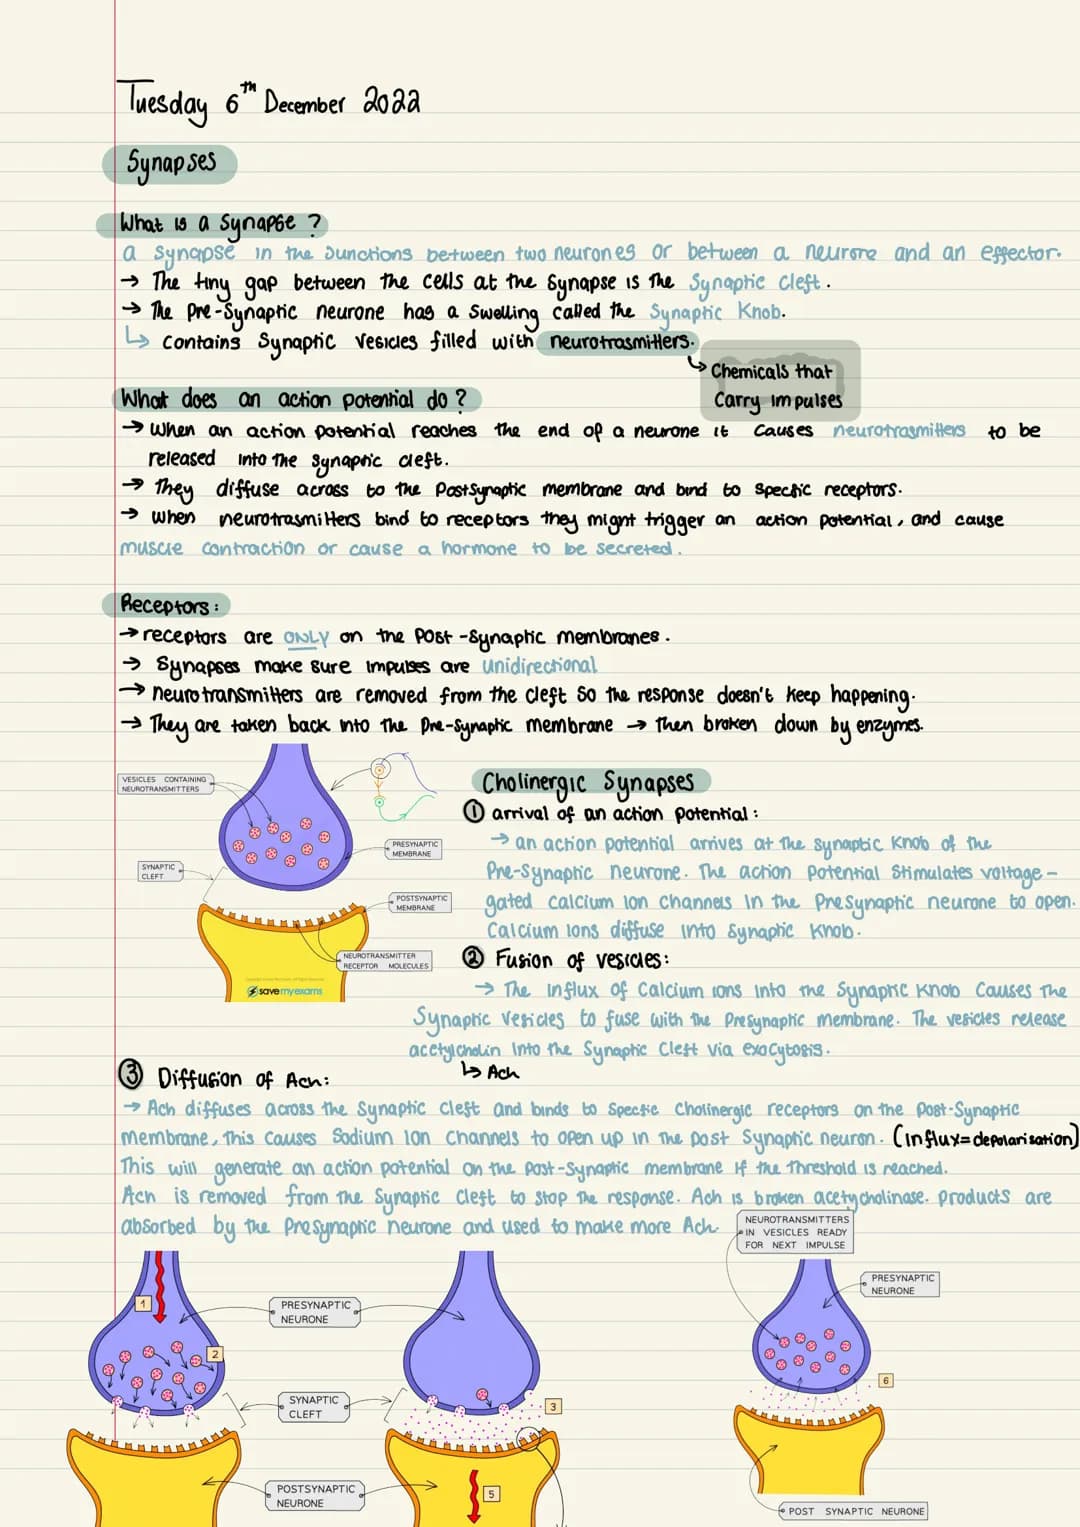 Tuesday 6th December 2022
Synapses
What is a Synapse ?
a synapse in the Junctions between two neurones or between a neurone and an effector.
→ The tiny gap between the cells at the Synapse is the Synaptic Cleft.
→ The Pre-Synaptic neurone has a Swelling called the Synaptic Knob.
↳ Contains Synaptic Vesicles filled with neurotrasmitters.
↳ Chemicals that
Carry impulses
What does an action potential do ?
→ When an action potential reaches the end of a neurone it Causes neurotrasmitters to be
released into the synaptic cleft.
→ They diffuse across to the PostSynaptic membrane and bind to Specific receptors.
→ When neurotrasmitters bind to receptors they might trigger an action potential, and cause
muscle contraction or cause a hormone to be secreted.
Receptors:
→ receptors are ONLY on the Post-Synaptic membranes.
→ Synapses make sure impulses are unidirectional
→ neurotransmitters are removed from the cleft So the response doesn't keep happening.
→ They are taken back into the Pre-Synaptic membrane → Then broken down by enzymes.
VESICLES CONTAINING
NEUROTRANSMITTERS
SYNAPTIC
CLEFT
PRESYNAPTIC
MEMBRANE
POSTSYNAPTIC
MEMBRANE
NEUROTRANSMITTER
RECEPTOR MOLECULES
savemyexams
Cholinergic Synapses
① arrival of an action Potential:
→ an action potential arrives at the synaptic Knob of the
Pre-Synaptic neurone. The action Potential Stimulates voltage-
gated Calcium ion channels in the PreSynaptic neurone to open.
Calcium ions diffuse into Synaptic Knob.
② Fusion of vesicles:
→ The influx of Calcium ions into the Synaptic Knob Causes The
Synaptic Vesicles to fuse with the Presynaptic membrane. The vesicles release
acetylcholin into the Synaptic Cleft via exocytosis.
↳ Ach
③ Diffusion of Ach:
→ Ach diffuses across the Synaptic Cleft and binds to Specific Cholinergic receptors on the Post-Synaptic
membrane, this Causes Sodium ion Channels to open up in the post Synaptic neuron. (influx=depolarisation)
This will generate an action potential on the Post-Synaptic membrane if the Threshold is reached.
Ach is removed from the Synaptic Cleft to stop the response. Ach is broken acetycholinase. products are
absorbed by the PreSynaptic neurone and used to make more Ach.
NEUROTRANSMITTERS
IN VESICLES READY
FOR NEXT IMPULSE
PRESYNAPTIC
NEURONE
1
2
PRESYNAPTIC
NEURONE
SYNAPTIC
CLEFT
3
6
POSTSYNAPTIC
NEURONE
5
POST SYNAPTIC NEURONE